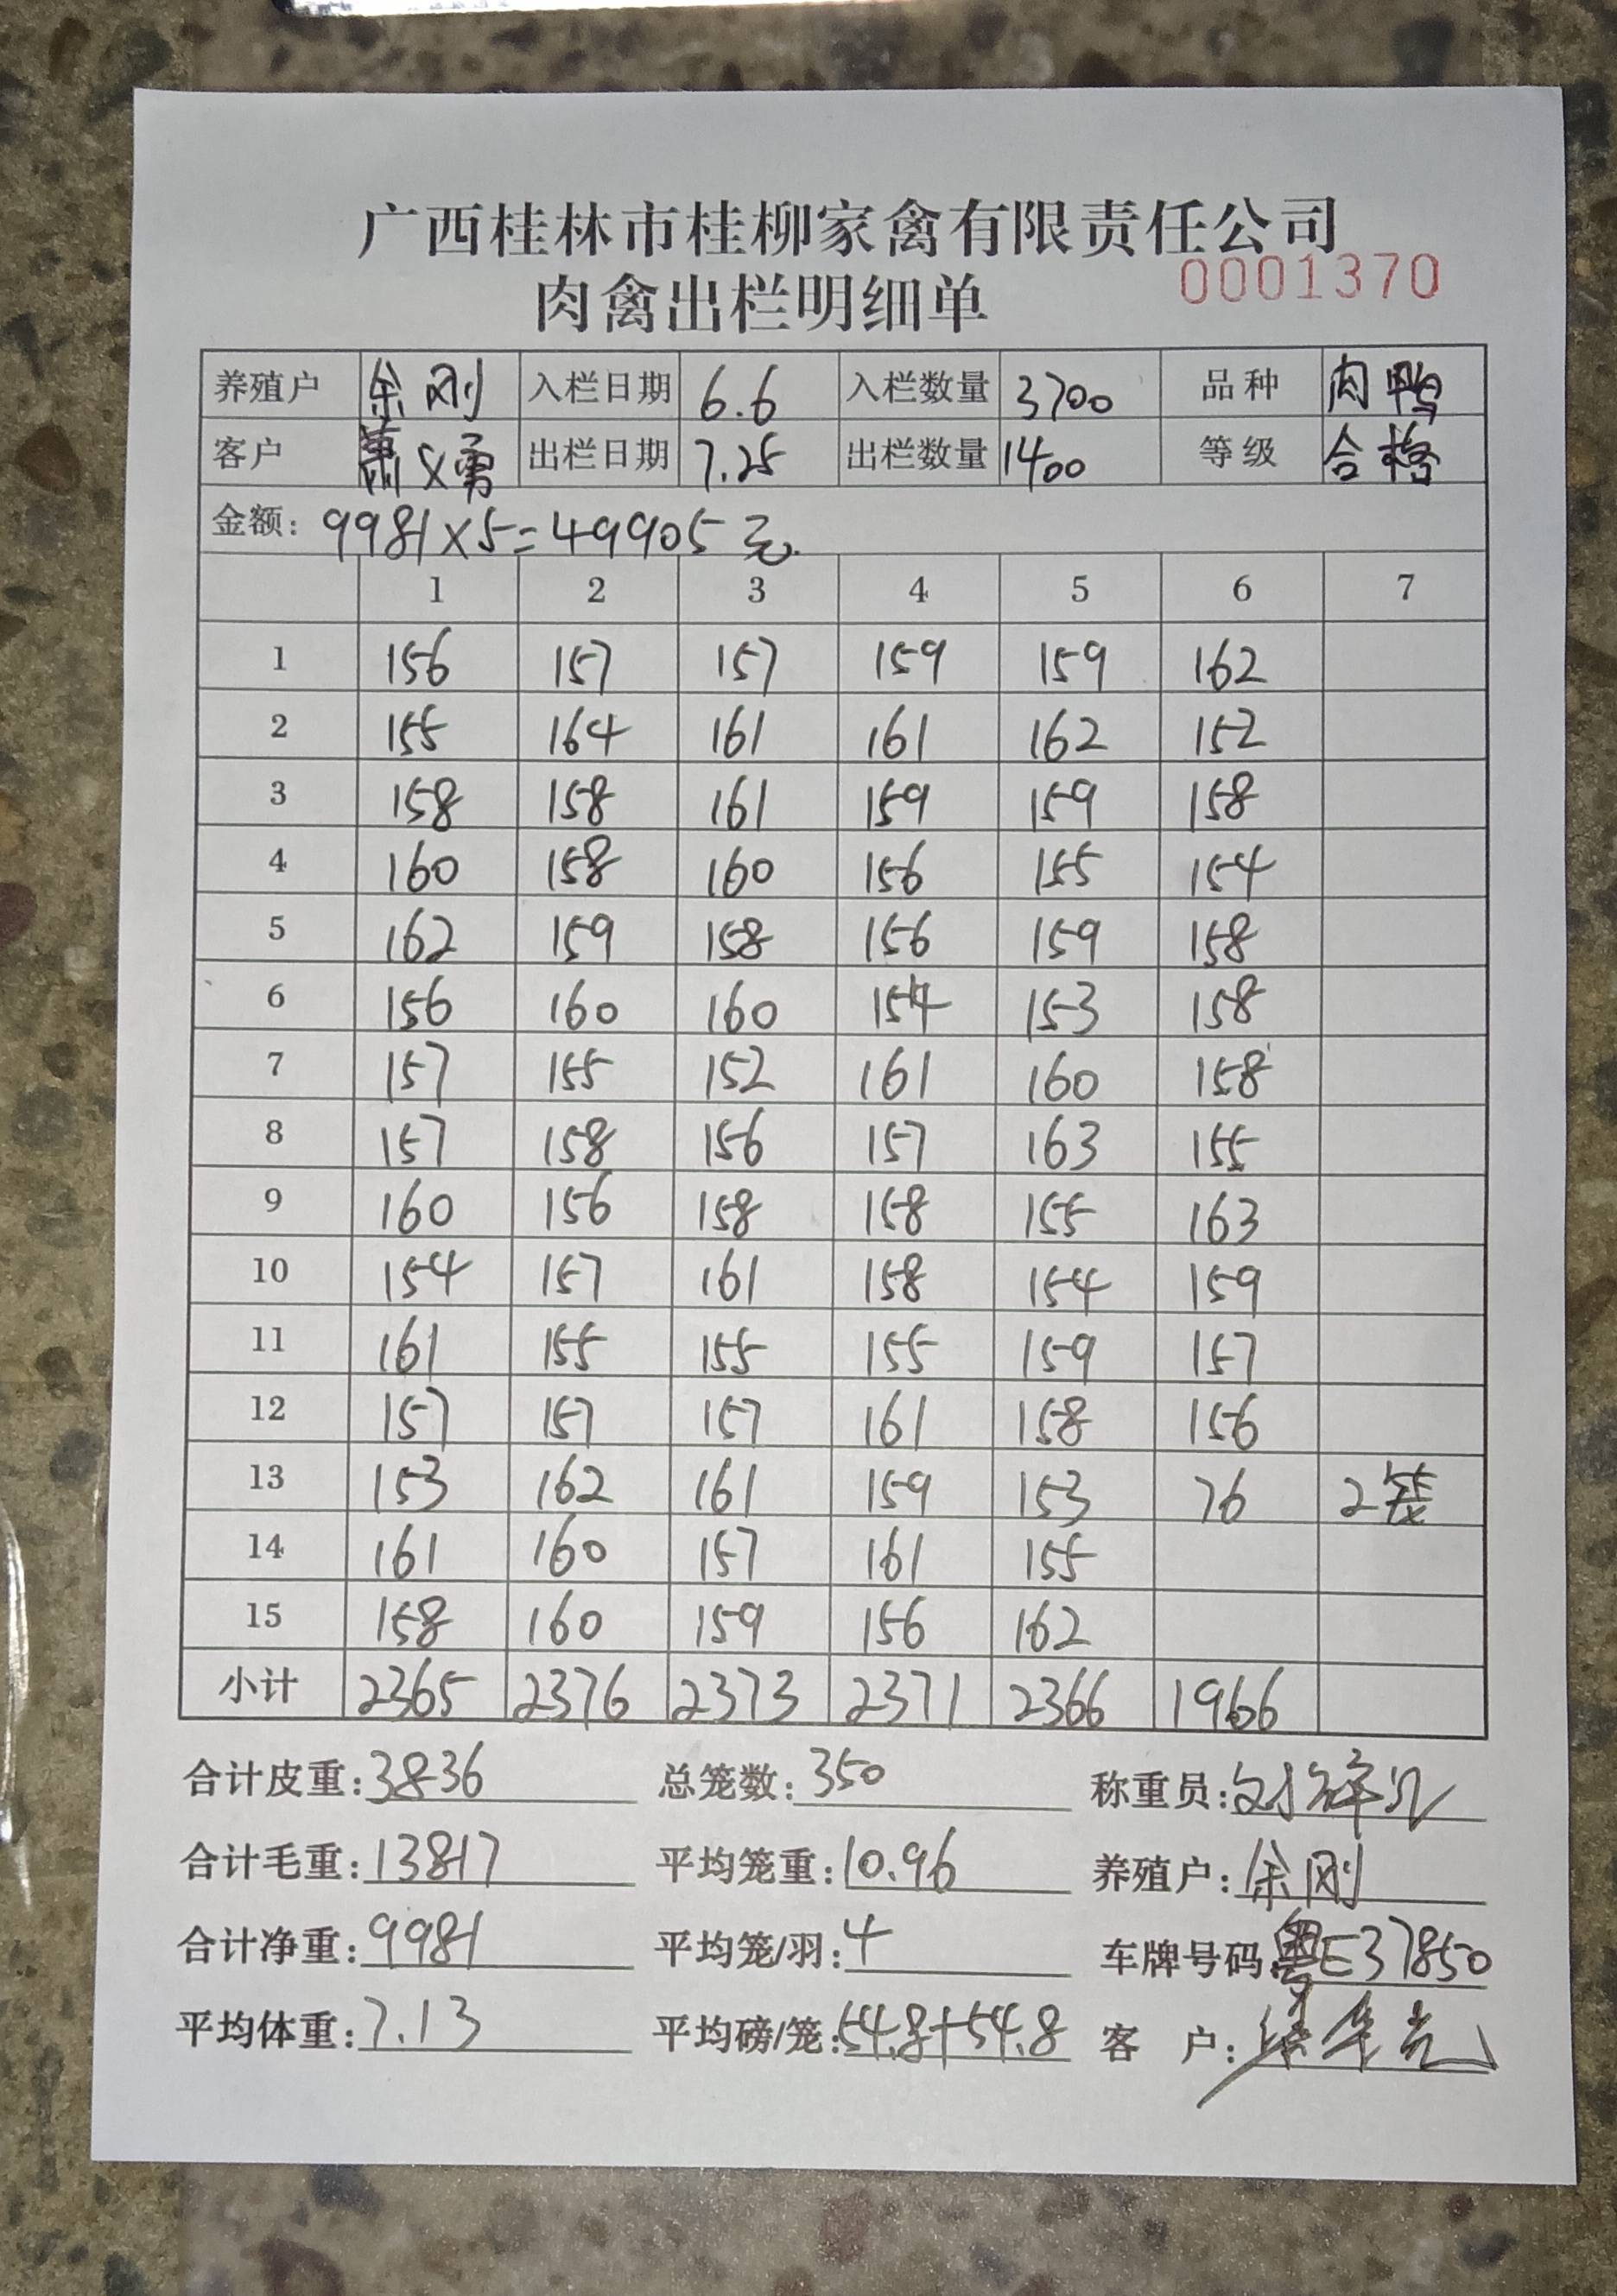 广西桂林市桂柳家禽有限责任公司
肉禽出栏明细单 0001370
养殖户 余刚 入栏日期 6.6 入栏数量 3700 品种 肉鸭
客户 萧X勇 出栏日期 7.25 出栏数量 1400 等级 合格
金额: 9981X5=49905元.
1 2 3 4 5 6 7
1 156 157 157 159 159 162
2 155 164 161 161 162 152
3 158 158 161 159 159 158
4 160 158 160 156 155 154
5 162 159 158 156 159 158
6 156 160 160 154 153 158
7 157 155 152 161 160 158
8 157 158 156 157 163 155
9 160 156 158 158 155 163
10 154 157 161 158 154 159
11 161 155 155 155 159 157
12 157 157 157 161 158 156
13 153 162 161 159 153 76 2笼
14 161 160 157 161 155
15 158 160 159 156 162
小计 2365 2376 2373 2371 2366 1966
合计皮重: 3836 总笼数: 350 称重员:
合计毛重: 13817 平均笼重: 10.96 养殖户: 余刚
合计净重: 9981 平均笼/羽: 4 车牌号码: 粤E37850
平均体重: 7.13 平均磅/笼: 54.8+54.8 客 户: